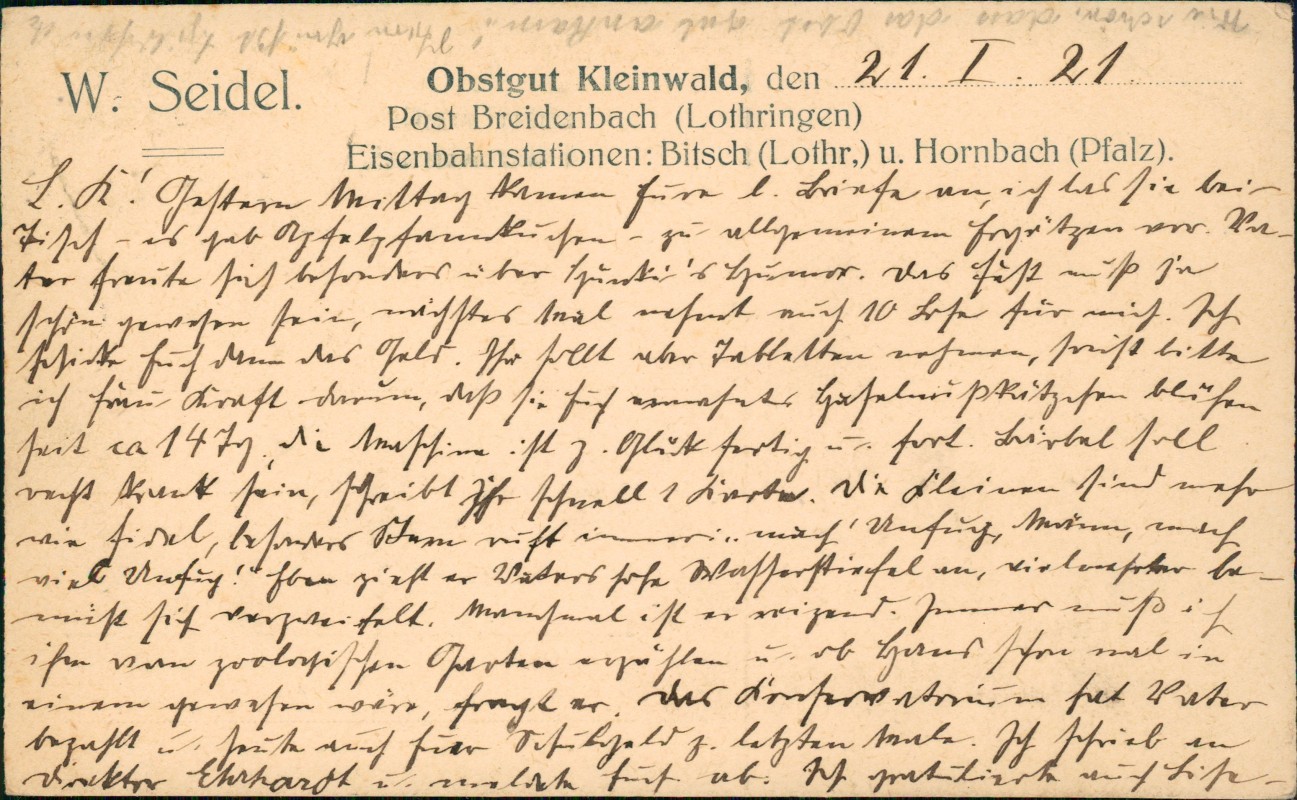 W. Seidel.
Obstgut Kleinwald, den 21. I. 21.
Post Breidenbach (Lothringen)
Eisenbahnstationen: Bitsch (Lothr.) u. Hornbach (Pfalz).
L. K! Gestern Mittag kamen Eure l. Briefe an, ich las sie bei
Tisch – es gab Apfelpfannkuchen – zu allgemeinem Ergötzen vor. Va-
ter freute sich besonders über Humor. Das Fest muß ja
schön gewesen sein, nächstes Mal nehmt auch 10 Lose für mich. Ich
schicke Euch dann das Geld. Ihr sollt aber Tabletten nehmen, sonst bitte
ich Frau Kraft darum, daß sie Euch ermahnt. Haselnußkätzchen blühen
seit ca 14 Tg, die Maschine ist z. Glück fertig u. fort. Bärbel soll
recht krank sein, schreibt Ihr schnell 1 Karte. Die Kleinen sind mehr
wie fidel, besonders ruft immer: „mach Unfug, Mann, mach
viel Unfug!" Eben zieht er Vaters hohe Wasserstiefel an, vielmehr be-
müht sich verzweifelt. Manchmal ist er reizend. Immer muß ich
ihm vom zoologischen Garten erzählen u. ob Hans schon mal in
einem gewesen wäre, fragt er. Das Konservatorium hat Vater
bezahlt u. heute auch Euer Schulgeld z. letzten Male. Ich schrieb an
Direktor Ehrhardt u. meldete Euch ab. Ich gratulierte auch Liese-